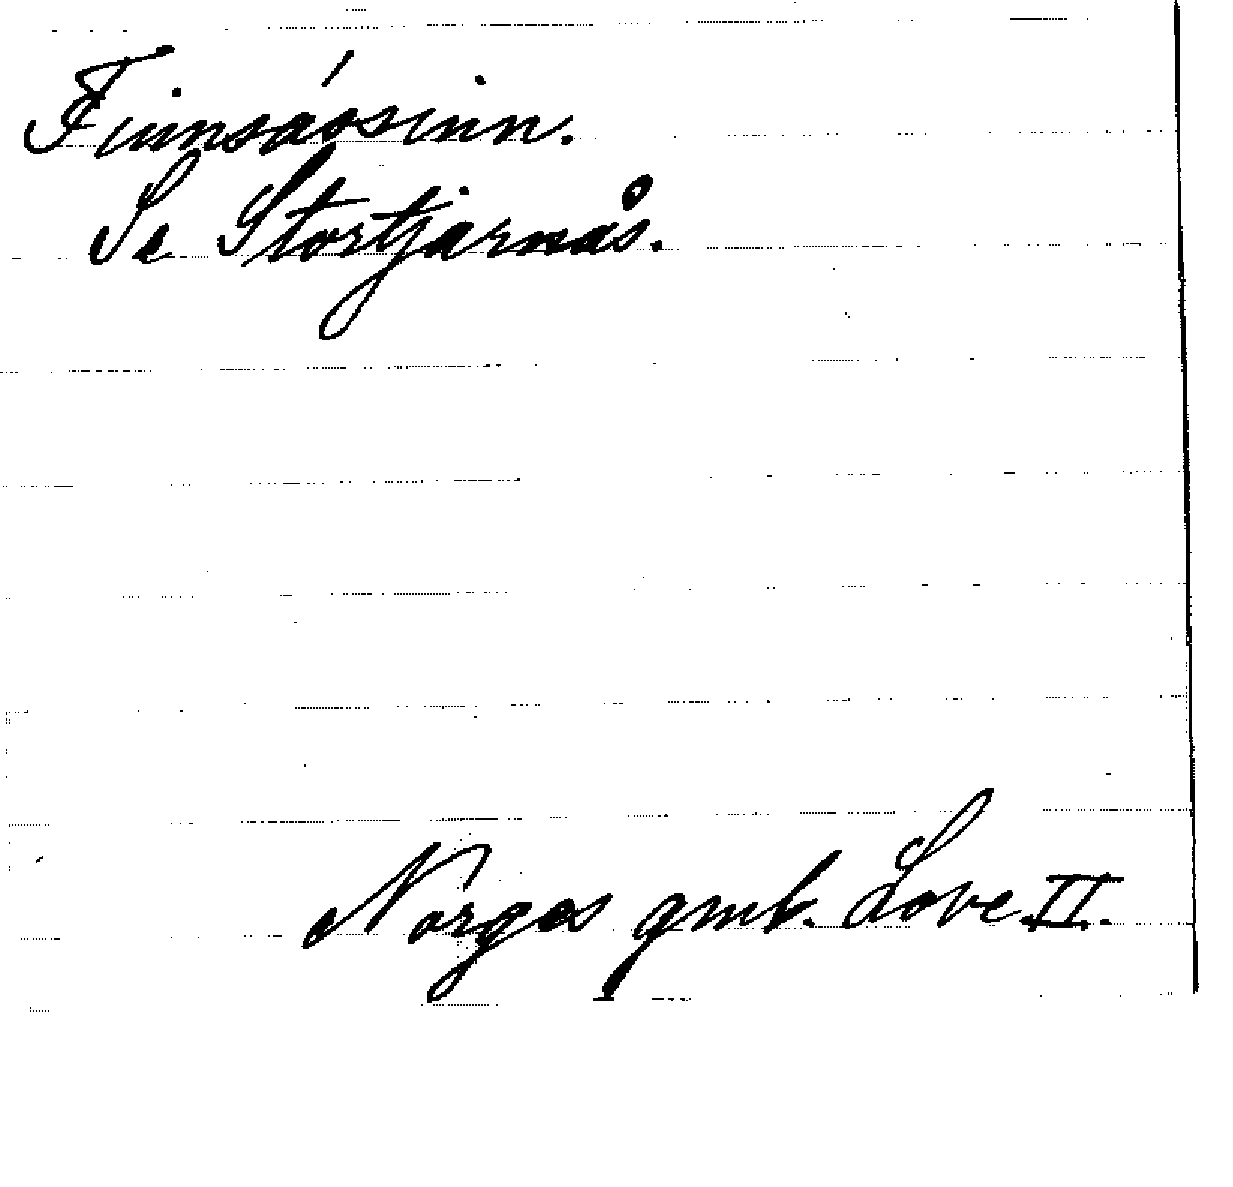 Finnsáósinn.
Se Stortjärnås.
Norges gml. Love II.